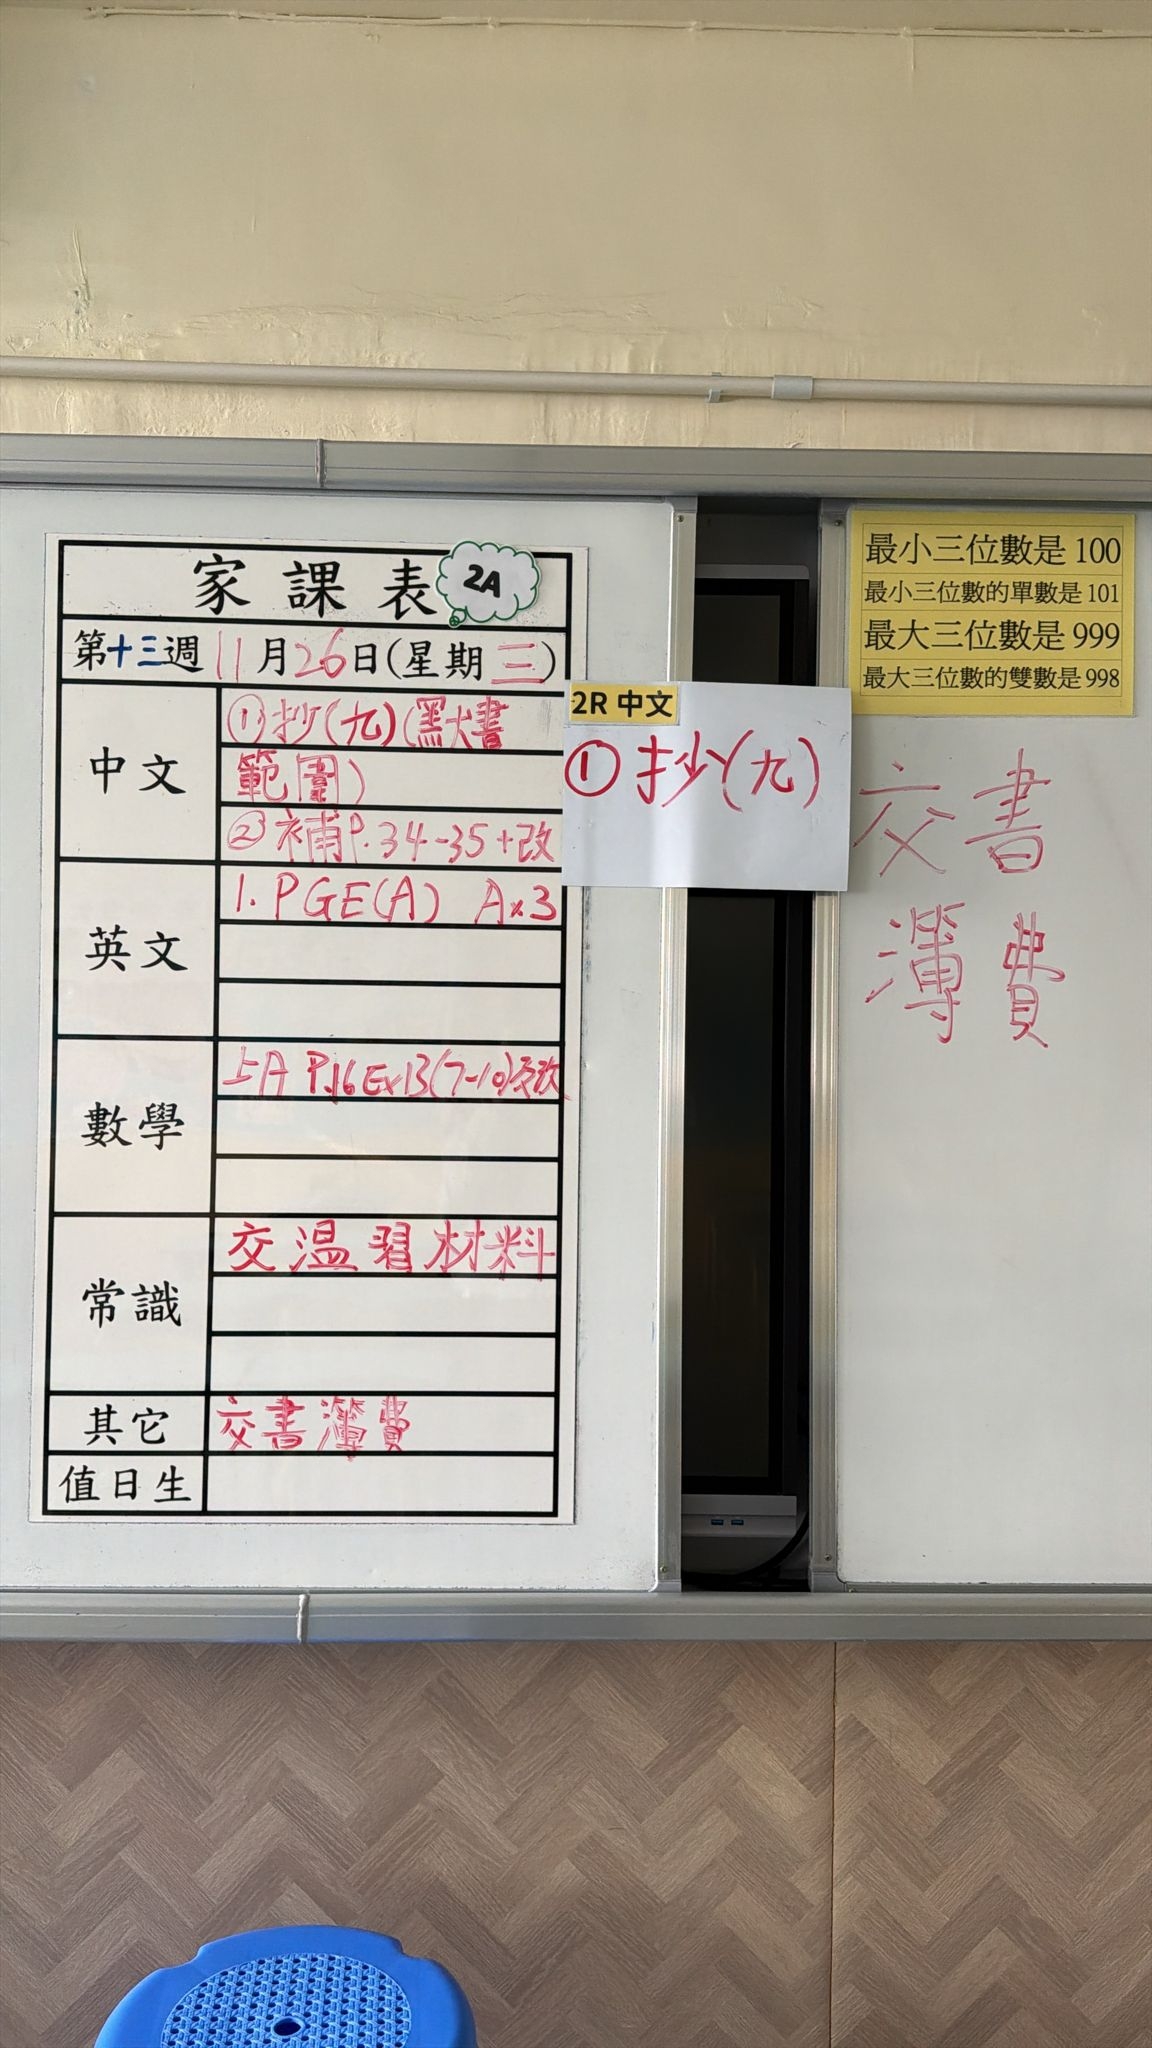 家課表 2A
第十三週 11月26日(星期三)
中文
①抄(九)(默書
範圍)
②補P.34-35+改
英文
1. PGE(A) A×3
數學
上A P.16 Ex13(7-10)交改
常識
交溫習材料
其它
交書簿費
值日生
2R 中文
①抄(九)
最小三位數是 100
最小三位數的單數是 101
最大三位數是 999
最大三位數的雙數是 998
交書
簿費